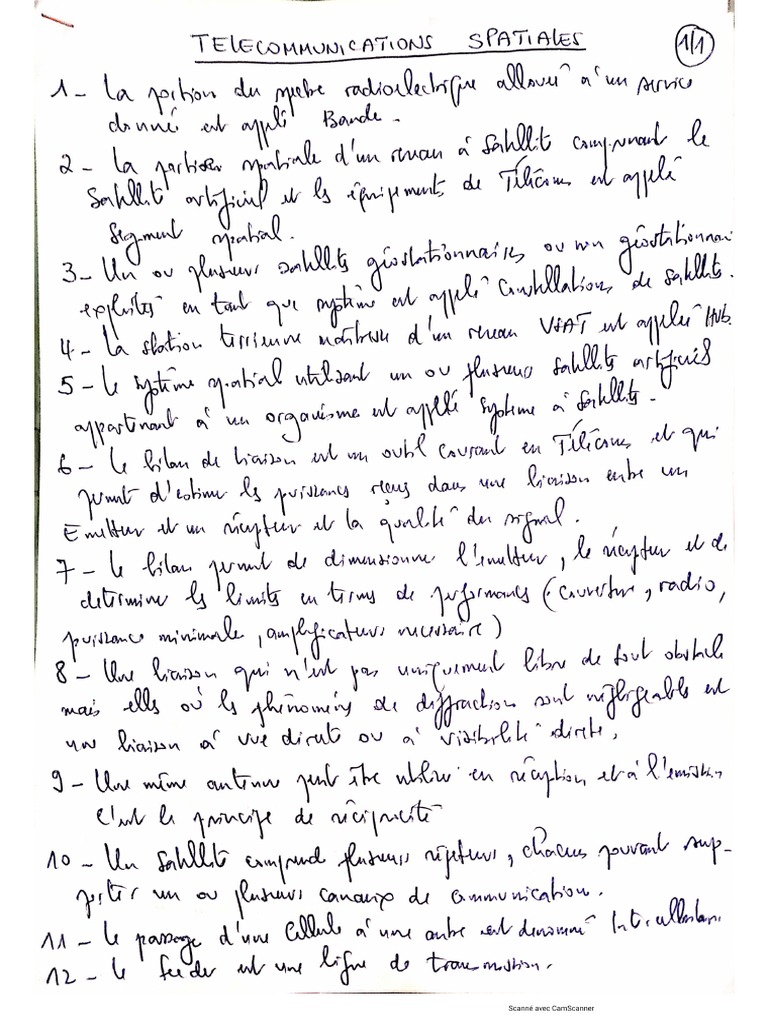 TELECOMMUNICATIONS SPATIALES
1/1
1- La portion du spectre radioélectrique alloué à un service
donné est applé Bande.
2- La partie spatiale d'un réseau à satellite comprenant le
Satellite artificiel et les équipements de Télécoms est applé
Segment spatial.
3- Un ou plusieurs satellites géostationnaires ou non géostationnai
exploités en tant que système est applé Constellations de satellite.
4- La station terrienne maîtresse d'un réseau VSAT est applé Hub.
5- Le système spatial utilisant un ou plusieurs satellites artificiels
appartenant à un organisme est applé système à satellites.
6- Le bilan de liaison est un outil courant en Télécoms et qui
permet d'estimer les puissances reçues dans une liaison entre un
Emetteur et un récepteur et la qualité du signal.
7- Le bilan permet de dimensionner l'emetteur, le récepteur et de
determiner les limites en terms de performances (couverture, radio,
puissance minimale, amplificateurs necessaire)
8- Une liaison qui n'est pas uniquement libre de tout obstacle
mais elles où les phénomènes de diffraction sont négligeables est
une liaison à vue directe ou à visibilité directe.
9- Une même antenne peut être utiliser en réception et à l'émission
C'est le principe de réciprocité
10- Un satellite comprend plusieurs répéteurs, chacun pouvant sup-
porter un ou plusieurs canaux de communication.
11- Le passage d'une Cellule à une autre est denommé
12- Le feeder est une ligne de transmission.
Scanné avec CamScanner